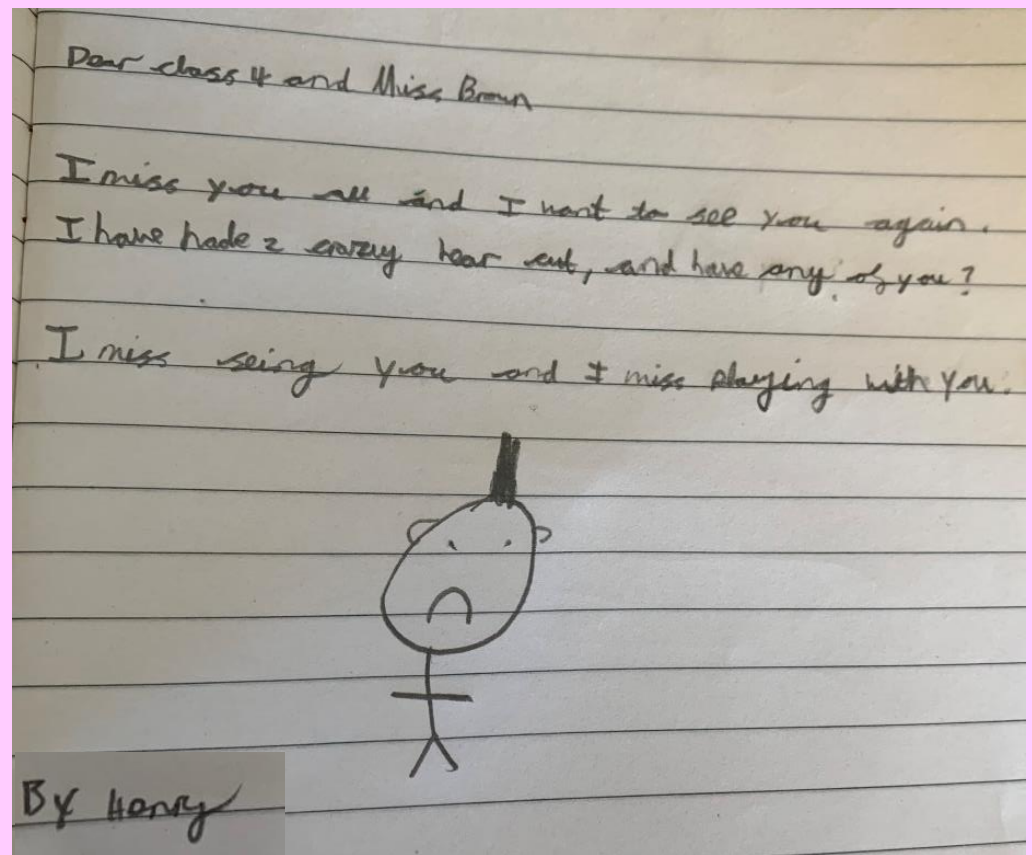 Dear class 4 and Miss Brown
I miss you all and I want to see you again.
I have hade 2 crazuy hear cut, and have any of you?
I miss seing you and I miss playing with you.
By Henry